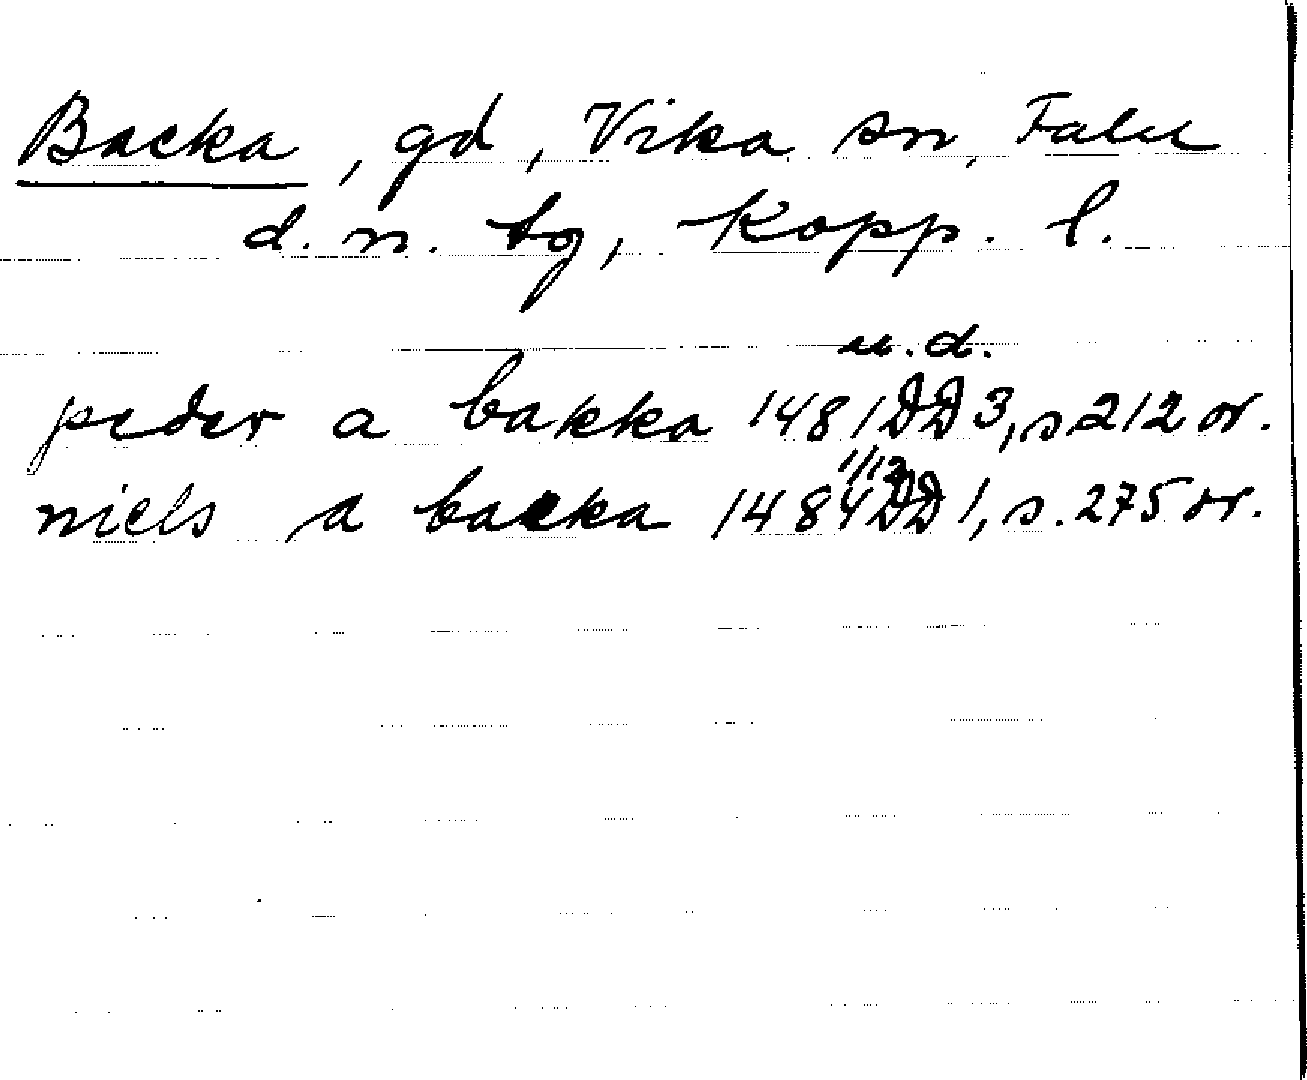 Backa, gd, Vika sn, Falu
d. n. tg, Kopp. l.
u.d.
peder a bakka 1481 DD 3, s 212 or.
1/12
niels a backa 1484 DD 1, s. 275 or.